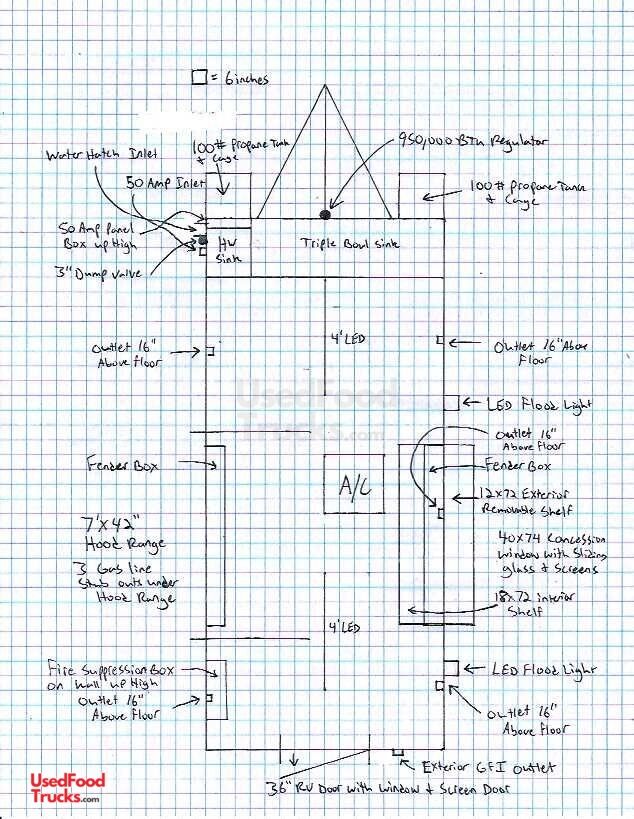 = 6 inches
Water Hatch Inlet
100# Propane Tank
& Cage
950,000 BTU Regulator
50 Amp Inlet
100# Propane Tank
& Cage
50 Amp Panel
Box up High
HW
Sink
Triple Bowl Sink
3" Dump Valve
4' LED
Outlet 16"
Above Floor
Outlet 16" Above
Floor
UsedFood
Trucks.com
LED Flood Light
Outlet 16"
Above Floor
Fender Box
A/C
Fender Box
12x72 Exterior
Removable Shelf
7'x42"
Hood Range
40x74 Concession
Window with Sliding
glass & Screens
3 Gas line
Stub outs under
Hood Range
18x72 interior
Shelf
4' LED
Fire Suppression Box
on Wall up High
LED Flood Light
Outlet 16"
Above Floor
Outlet 16"
Above Floor
Exterior GFI Outlet
36" RV Door with Window & Screen Door
UsedFood
Trucks.com